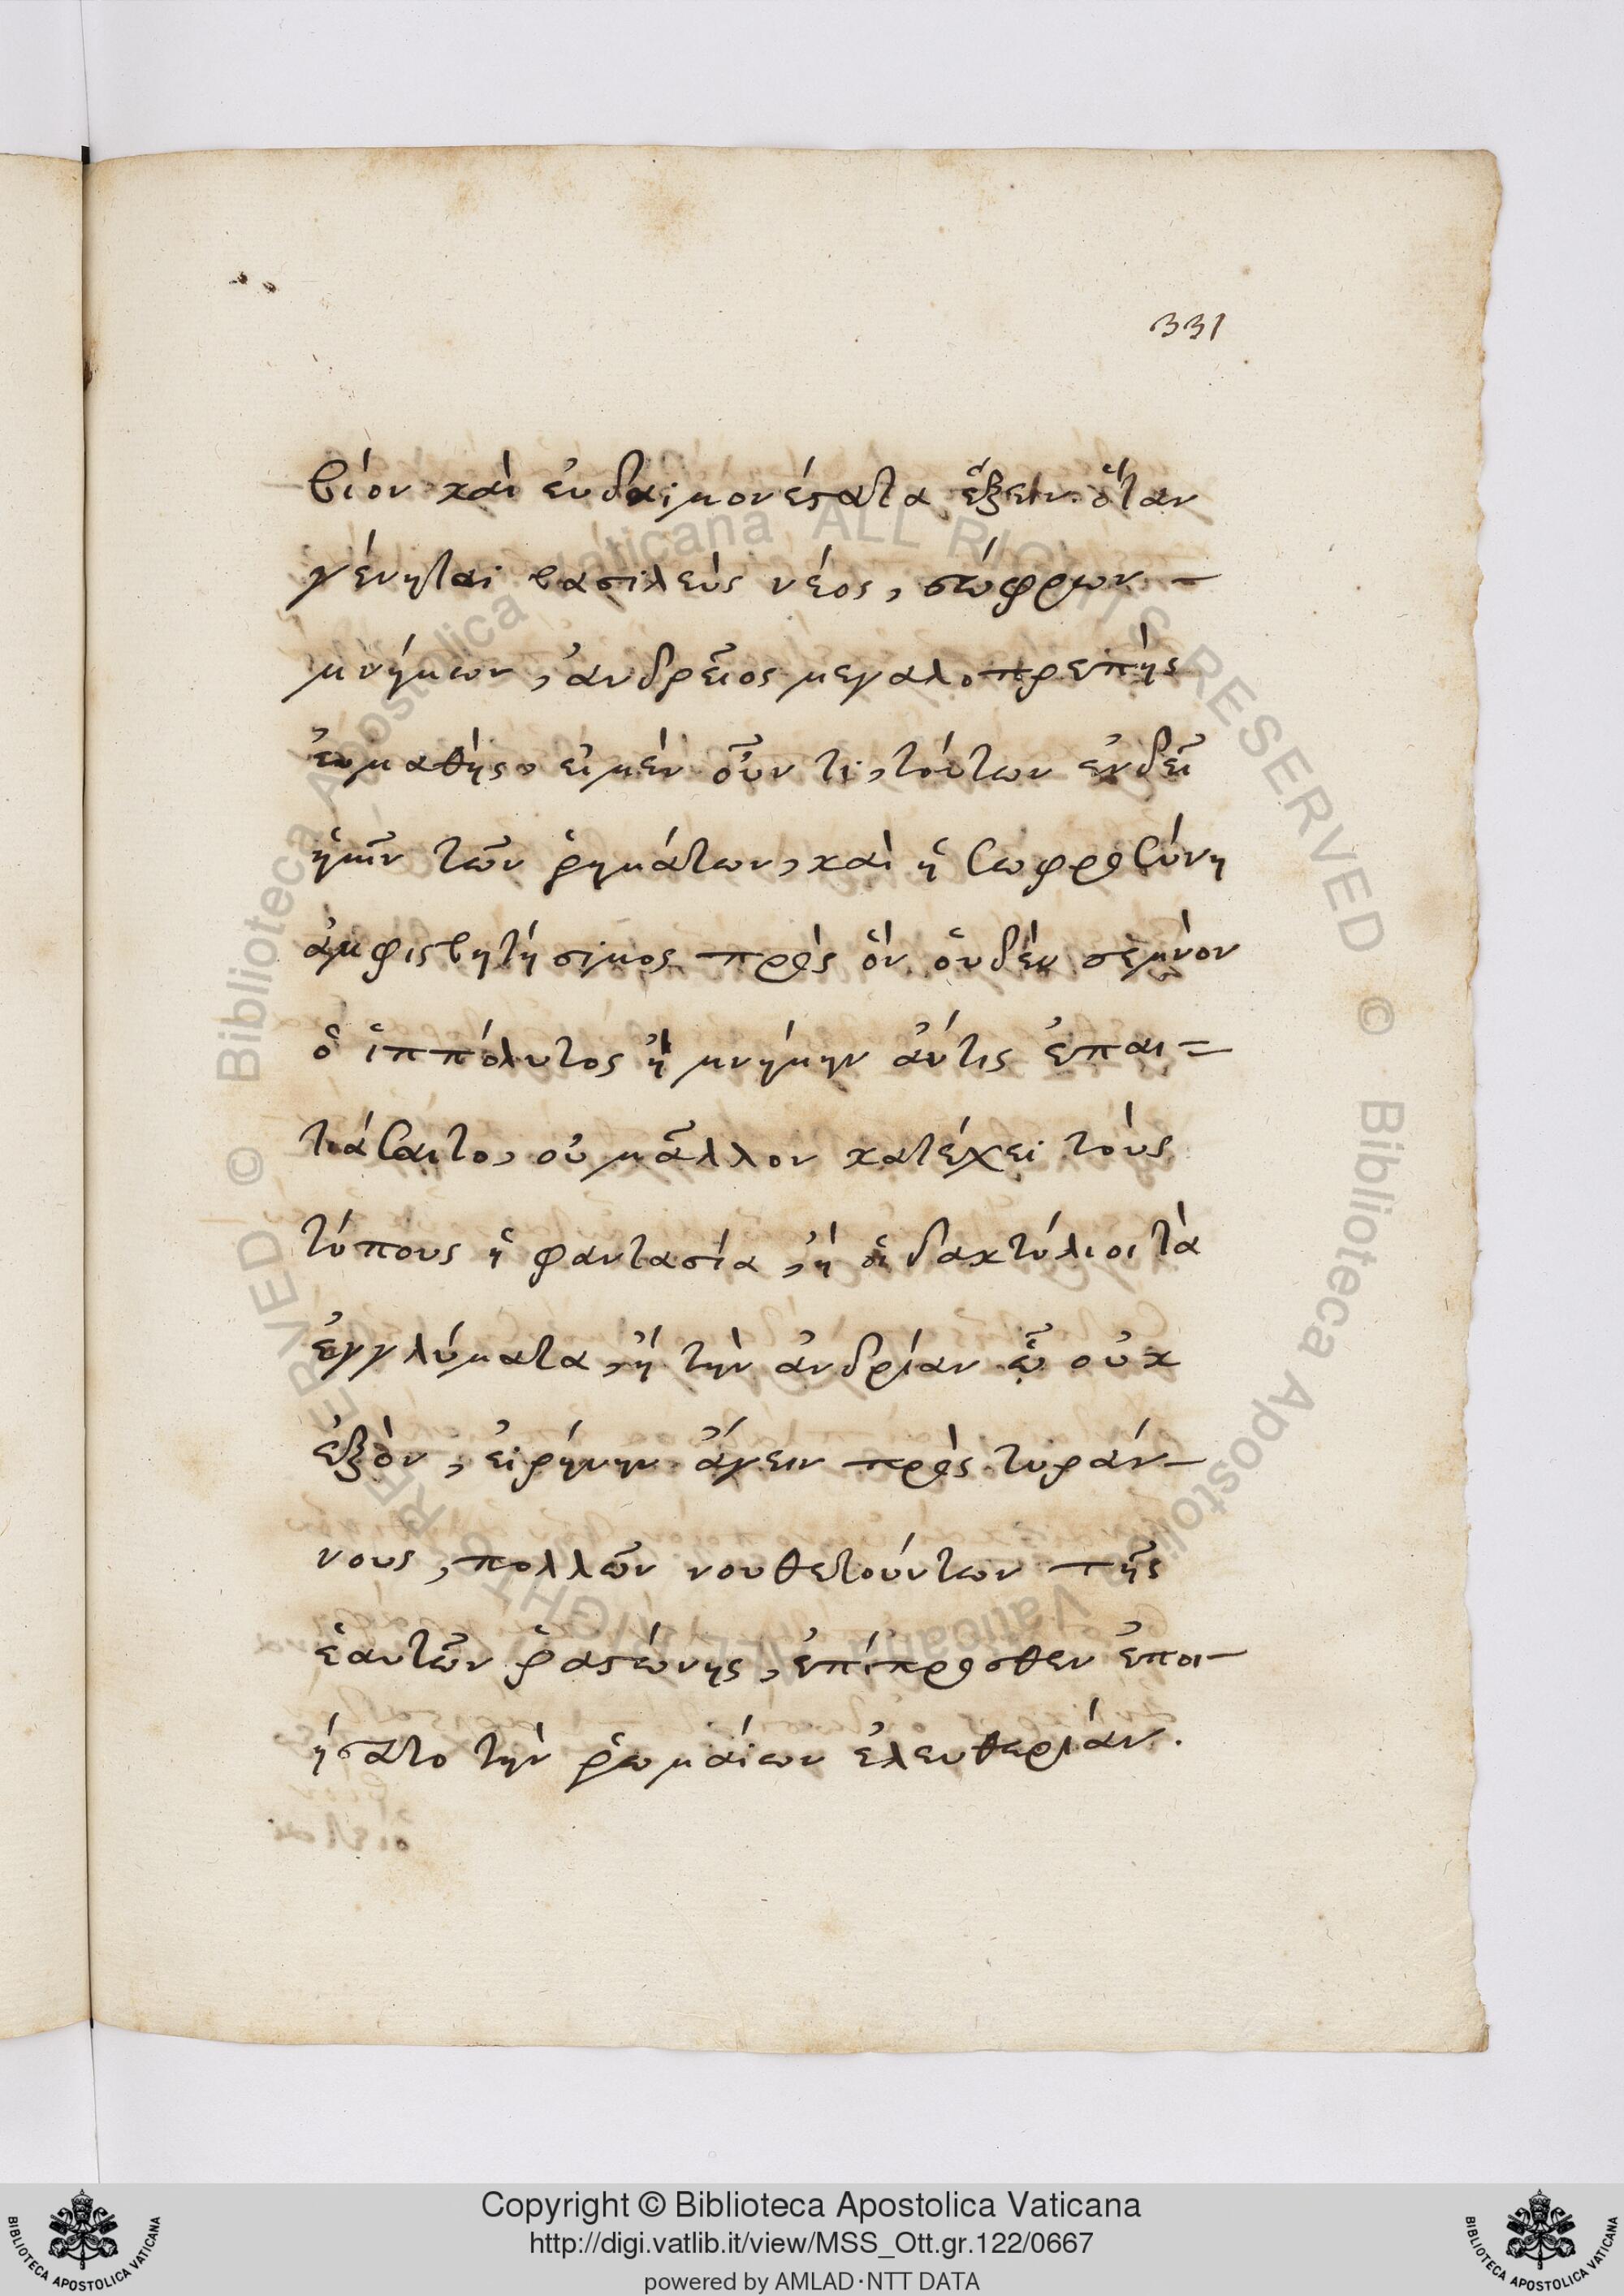 331
βίον καὶ ἐυδαιμονέϛατα ἕξειν. ὅταν
γένηται βασιλεὺς νέος, σώφρων –
μνήμων, ἀνδρεῖος μεγαλοπρεπὴς
ἐυμαθής. εἰ μὲν οὖν τι, τούτων ἐνδεῖ
ἡμῖν τῶν ῥημάτων, καὶ ἡ σωφροσύνη
ἀμφισβητήσιμος πρὸς ὃν οὐδὲν σεμνὸν
ὁ ἱππόλυτος ἢ μνήμην ἄυτις ἐπαι=
τιάσαιτο, οὐ μᾶλλον κατέχει τοὺς
τύπους ἡ φαντασία, ἢ οἱ δακτύλιοι τὰ
ἐγγλύματα, ἢ τὴν ἀνδρίαν ᾧ οὐκ
ἐξὸν, εἰρήνην ἄγειν πρὸς τυράν–
νους, πολλῶν νουθετούντων πῆς
ἑαυτῶν ῥαϛώνης, ἐπίπροσθεν ἐποι–
ήσατο τὴν ῥωμαίων ἐλευθερίαν.
Copyright © Biblioteca Apostolica Vaticana
http://digi.vatlib.it/view/MSS_Ott.gr.122/0667
powered by AMLAD·NTT DATA
BIBLIOTECA APOSTOLICA VATICANA
BIBLIOTECA APOSTOLICA VATICANA